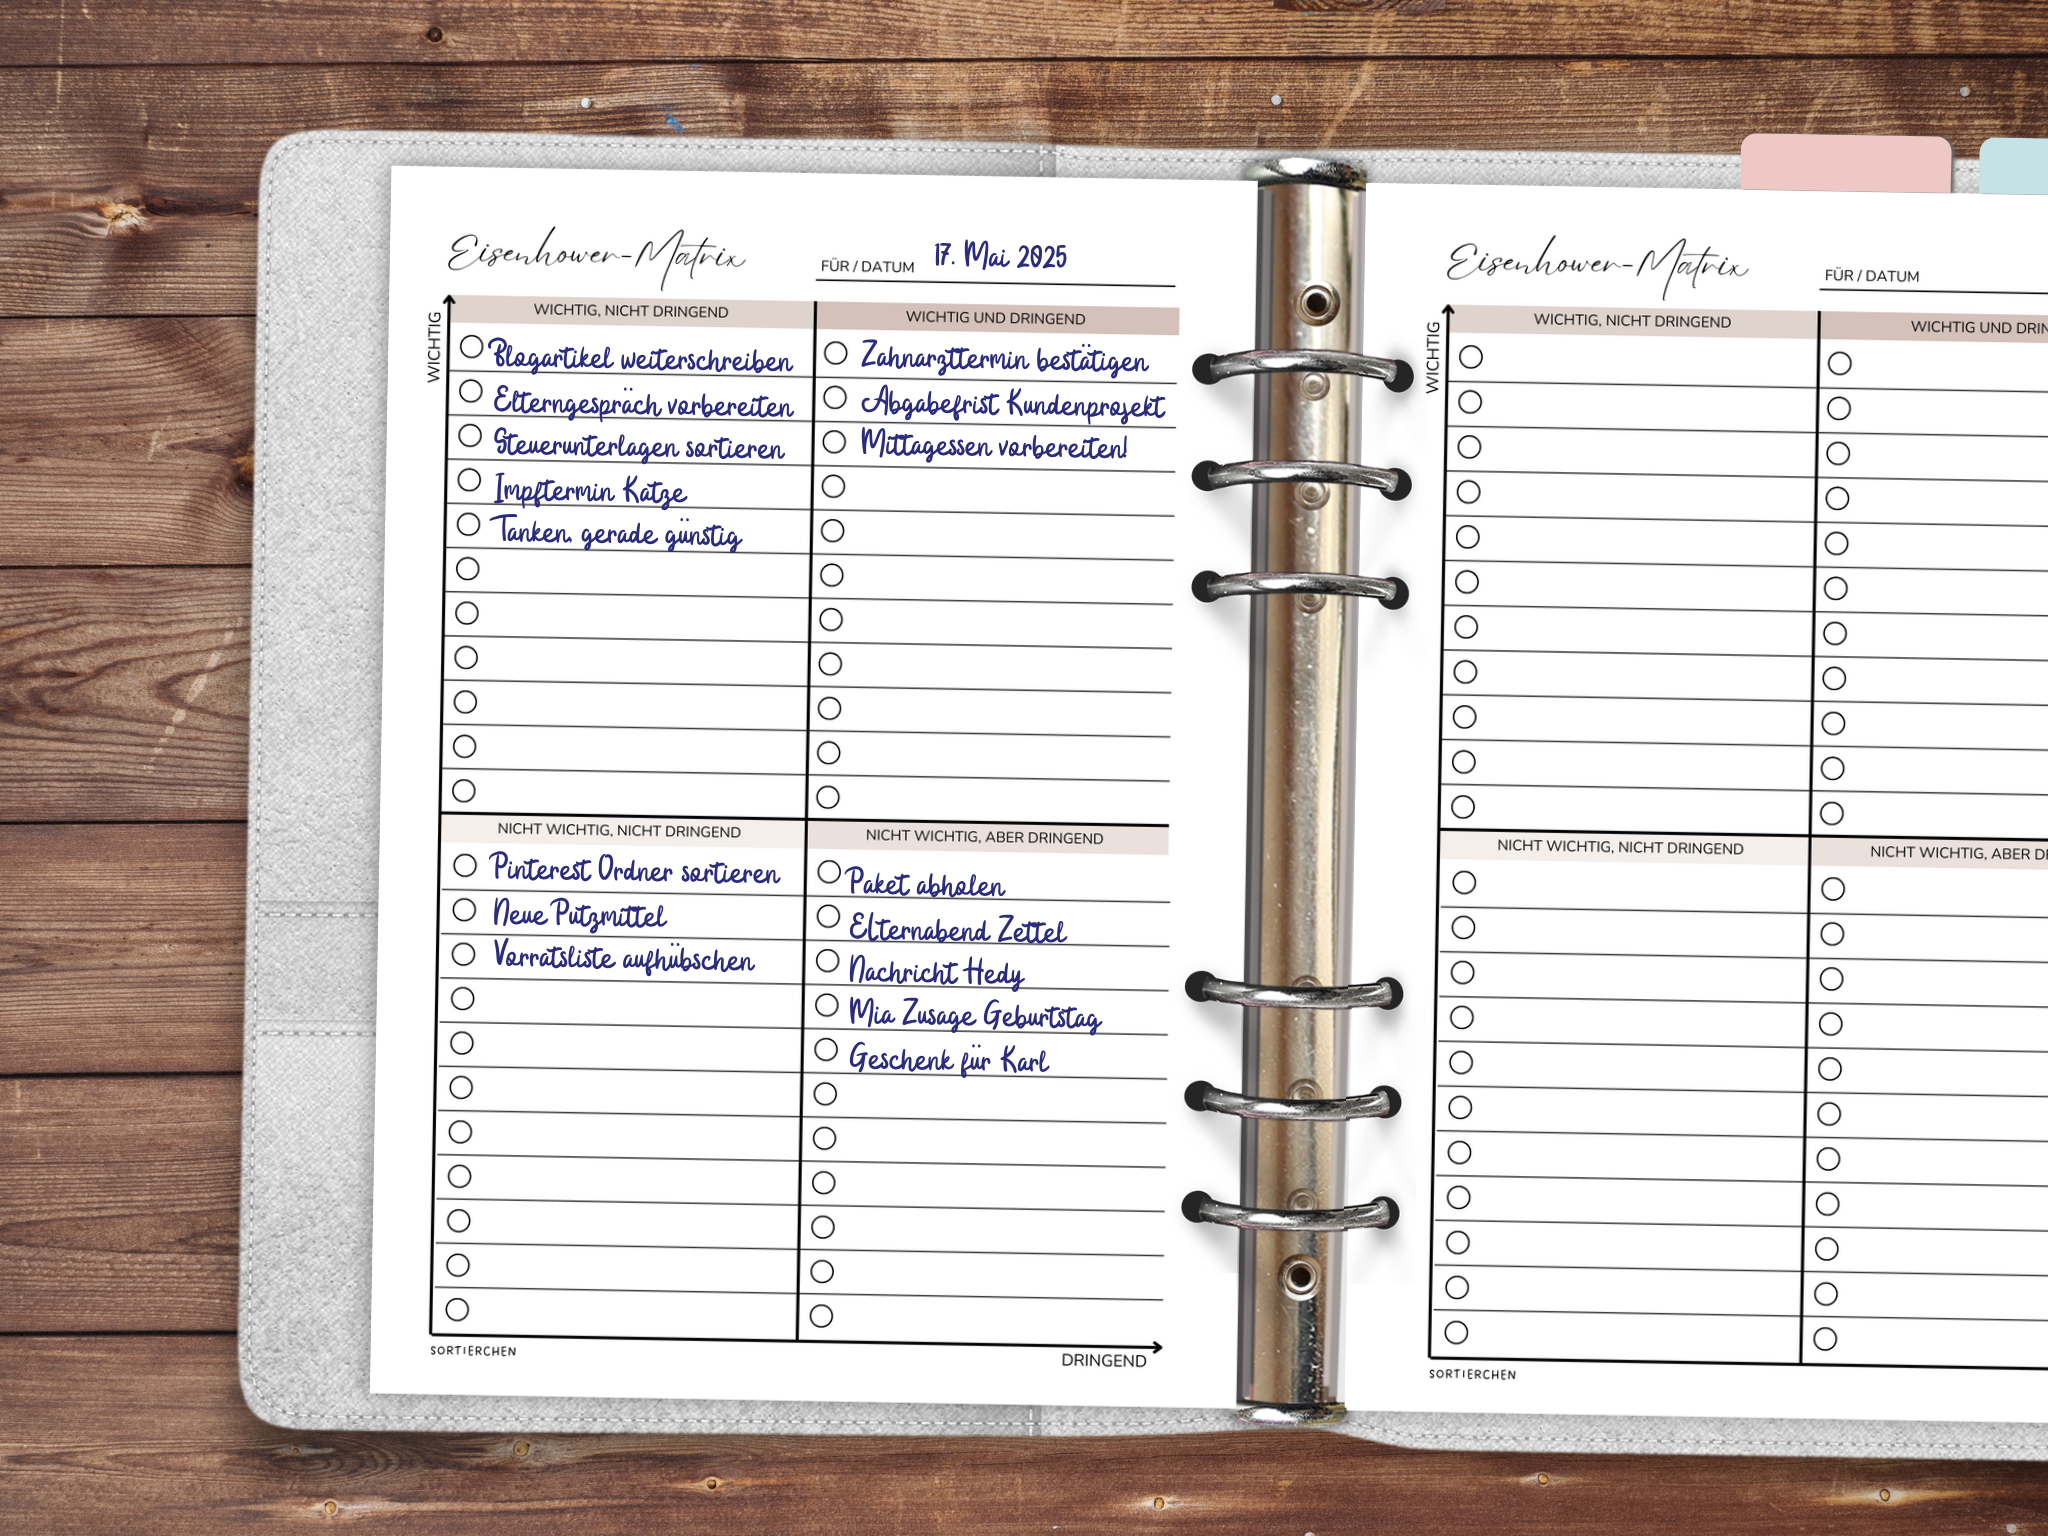 Eisenhower-Matrix
FÜR / DATUM 17. Mai 2025
WICHTIG
WICHTIG, NICHT DRINGEND
Blogartikel weiterschreiben
Elterngespräch vorbereiten
Steuerunterlagen sortieren
Impftermin Katze
Tanken. gerade günstig
WICHTIG UND DRINGEND
Zahnarzttermin bestätigen
Abgabefrist Kundenprojekt
Mittagessen vorbereiten!
NICHT WICHTIG, NICHT DRINGEND
Pinterest Ordner sortieren
Neue Putzmittel
Vorratsliste aufhübschen
NICHT WICHTIG, ABER DRINGEND
Paket abholen
Elternabend Zettel
Nachricht Hedy
Mia Zusage Geburtstag
Geschenk für Karl
SORTIERCHEN
DRINGEND
Eisenhower-Matrix
FÜR / DATUM
WICHTIG
WICHTIG, NICHT DRINGEND
WICHTIG UND DRIN
NICHT WICHTIG, NICHT DRINGEND
NICHT WICHTIG, ABER D
SORTIERCHEN